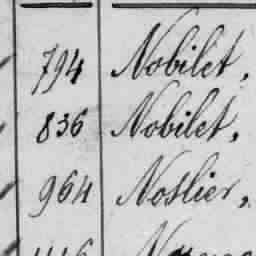 794 Nobilet,
836 Nobilet,
964 Noslier,